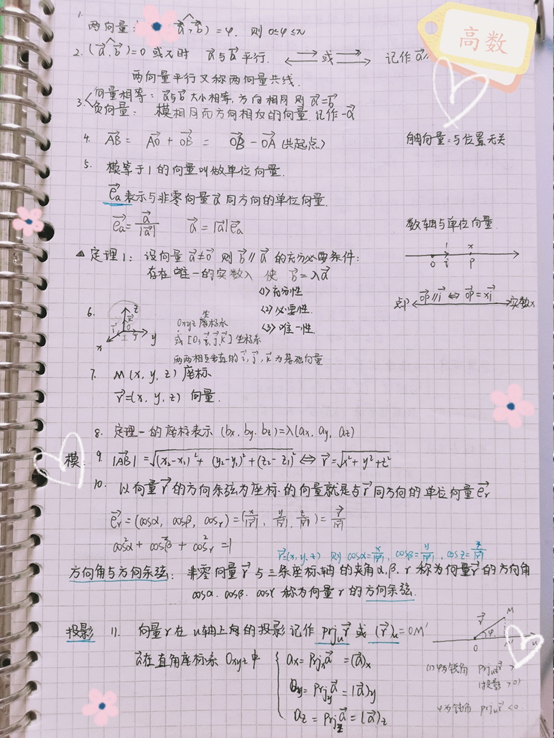 高数
1. 两向量: (a⃗,b⃗)=φ. 则 0≤φ≤π
2. (a⃗,b⃗)=0 或 π 时 a⃗与b⃗平行. 或 记作 a⃗//
两向量平行又称两向量共线.
3. 向量相等: a⃗与b⃗大小相等, 方向相同 则 a⃗=b⃗
负向量: 模相同而方向相反的向量, 记作-a⃗
4. AB⃗ = AO⃗ + OB⃗ = OB⃗ - OA⃗ (共起点)
自由向量:与位置无关
5. 模等于1的向量叫做单位向量.
e⃗a表示与非零向量a⃗同方向的单位向量.
e⃗a = a⃗/|a⃗| a⃗=|a⃗|e⃗a
数轴与单位向量
o i 1 x P
即 OP⃗//i⃗ ⇔ OP⃗=xi⃗ 实数x
▲定理1: 设向量a⃗≠0⃗ 则 b⃗//a⃗ 的充分必要条件:
存在唯一的实数λ 使 b⃗=λa⃗
(1)充分性
(2)必要性
(3)唯一性
6. z y x
Oxyz 坐标系
或 [O,i⃗,j⃗,k⃗] 坐标系
两两相互垂直的i⃗,j⃗,k⃗为基向量
7. M(x,y,z) 坐标
r⃗=(x,y,z) 向量.
8. 定理一的座标表示 (bx,by,bz)=λ(ax,ay,az)
模: 9. |AB⃗|=√(x₂-x₁)²+(y₂-y₁)²+(z₂-z₁)² ⇔ r⃗=√x²+y²+z²
10. 以向量r⃗的方向余弦为座标的向量就是与r⃗同方向的单位向量e⃗r
e⃗r=(cosα,cosβ,cosγ)=(x/|r⃗|,y/|r⃗|,z/|r⃗|)=r⃗/|r⃗|
cos²α+cos²β+cos²γ=1
r⃗=(x,y,z) 则 cosα=x/|r⃗|, cosβ=y/|r⃗|, cosz=z/|r⃗|
方向角与方向余弦: 非零向量r⃗与三条座标轴的夹角α,β,γ称为向量r⃗的方向角
cosα. cosβ. cosγ 称为向量r的方向余弦.
投影 11. 向量r在u轴上向的投影记作prjur⃗或(r⃗)u=OM'
a⃗在直角座标系Oxyz中
ax=Prjxa⃗=(a⃗)x
ay=Prjya⃗=(a⃗)y
az=Prjza⃗=(a⃗)z
r⃗ M φ O
(1)φ为锐角 Prjur⃗>
φ为钝角 prjur⃗<0